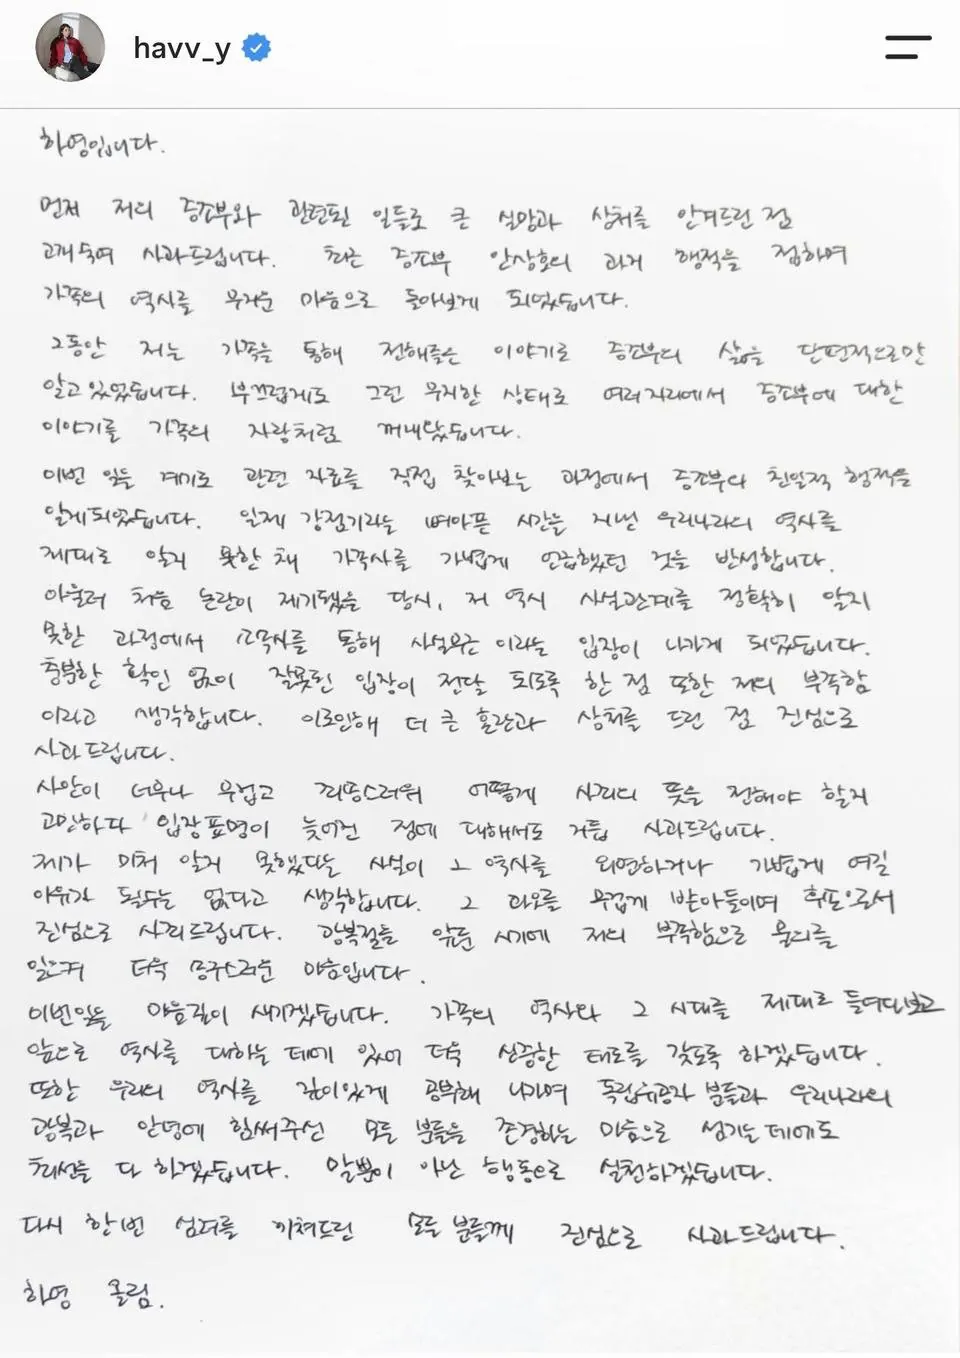 havv_y
하영입니다.
먼저 저의 증조부와 관련된 일들로 큰 실망과 상처를 안겨드린 점
고개 숙여 사과드립니다. 최근 증조부 안상호의 과거 행적을 접하며
가족의 역사를 무거운 마음으로 돌아보게 되었습니다.
그동안 저는 가족을 통해 전해들은 이야기로 증조부의 삶을 단편적으로만
알고 있었습니다. 부끄럽게도 그런 무지한 상태로 여러 자리에서 증조부에 대한
이야기를 가족의 자랑처럼 꺼내왔습니다.
이번 일을 계기로 관련 자료를 직접 찾아보는 과정에서 증조부의 친일적 행적을
알게 되었습니다. 일제 강점기라는 뼈아픈 시간을 지낸 우리나라의 역사를
제대로 알지 못한 채 가족사를 가볍게 언급했던 것을 반성합니다.
아울러 처음 논란이 제기됐을 당시, 저 역시 사실관계를 정확히 알지
못한 과정에서 소속사를 통해 사실무근이라는 입장이 나가게 되었습니다.
충분한 확인 없이 잘못된 입장이 전달 되도록 한 점 또한 저의 부족함
이라고 생각합니다. 이로인해 더 큰 혼란과 상처를 드린 점 진심으로
사과드립니다.
사안이 너무나 무겁고 죄송스러워 어떻게 사죄의 뜻을 전해야 할지
고민하다 입장표명이 늦어진 점에 대해서도 거듭 사과드립니다.
제가 미처 알지 못했다는 사실이 그 역사를 외면하거나 가볍게 여길
이유가 될수는 없다고 생각합니다. 그 과오를 무겁게 받아들이며 후손으로서
진심으로 사죄드립니다. 광복절을 앞둔 시기에 저의 부족함으로 물의를
일으켜 더욱 송구스러운 마음입니다.
이번일을 마음깊이 새기겠습니다. 가족의 역사와 그 시대를 제대로 들여다보고
앞으로 역사를 대하는 데에 있어 더욱 신중한 태도를 갖도록 하겠습니다.
또한 우리의 역사를 깊이있게 공부해 나가며 독립유공자 분들과 우리나라의
광복과 안녕에 힘써주신 모든 분들을 존경하는 마음으로 섬기는 데에도
최선을 다 하겠습니다. 말뿐이 아닌 행동으로 실천하겠습니다.
다시 한번 심려를 끼쳐드린 모든 분들께 진심으로 사과드립니다.
하영 올림.